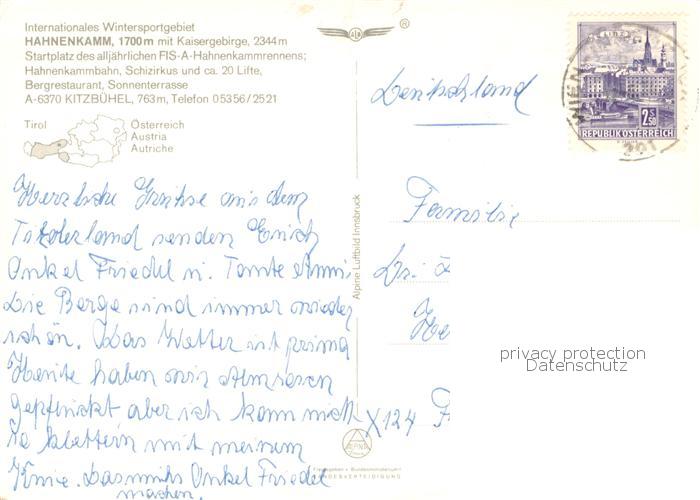 Internationales Wintersportgebiet
HAHNENKAMM, 1700m mit Kaisergebirge, 2344m
Startplatz des alljährlichen FIS-A-Hahnenkammrennens;
Hahnenkammbahn, Schizirkus und ca. 20 Lifte,
Bergrestaurant, Sonnenterrasse
A-6370 KITZBÜHEL, 763m, Telefon 05356/2521
Tirol
Österreich
Austria
Autriche
Herzliche Grüsse aus dem
Tirolerland senden Euch
Onkel Friedl u. Tante Anni.
Die Berge sind immer wieder
schön. Das Wetter ist prima
Heute haben wir Almrosen
gepflückt aber ich kann nicht
so klettern mit meinem
Knie. Das muss Onkel Friedel
machen.
Alpine Luftbild Innsbruck
®
Deutschland
Familie
Dr.
He
X124
LINZ
2S50
REPUBLIK ÖSTERREICH
WIEN
Freigegeben v. Bundesministerium
LANDESVERTEIDIGUNG
privacy protection
Datenschutz